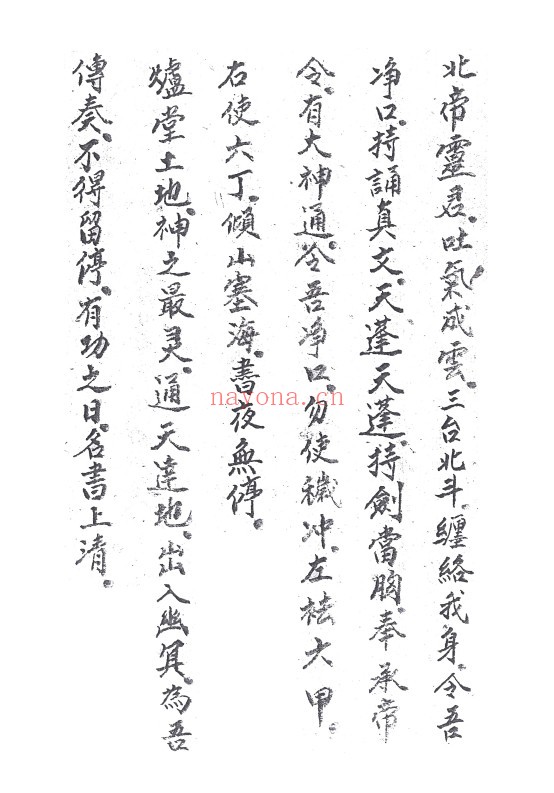 北帝靈君。吐氣成雲。三台北斗。纏絡我身。令吾
净口。持誦真文。天蓬天蓬。持劍當胸。奉承帝
令。有大神通。令吾净口。勿使穢冲。左祛大甲。
右使六丁。傾山塞海。書夜無停。
爐堂土地。神之最灵。通天達地。出入幽冥。為吾
傳奏。不得留停。有功之日。名書上清。
nayona.cn